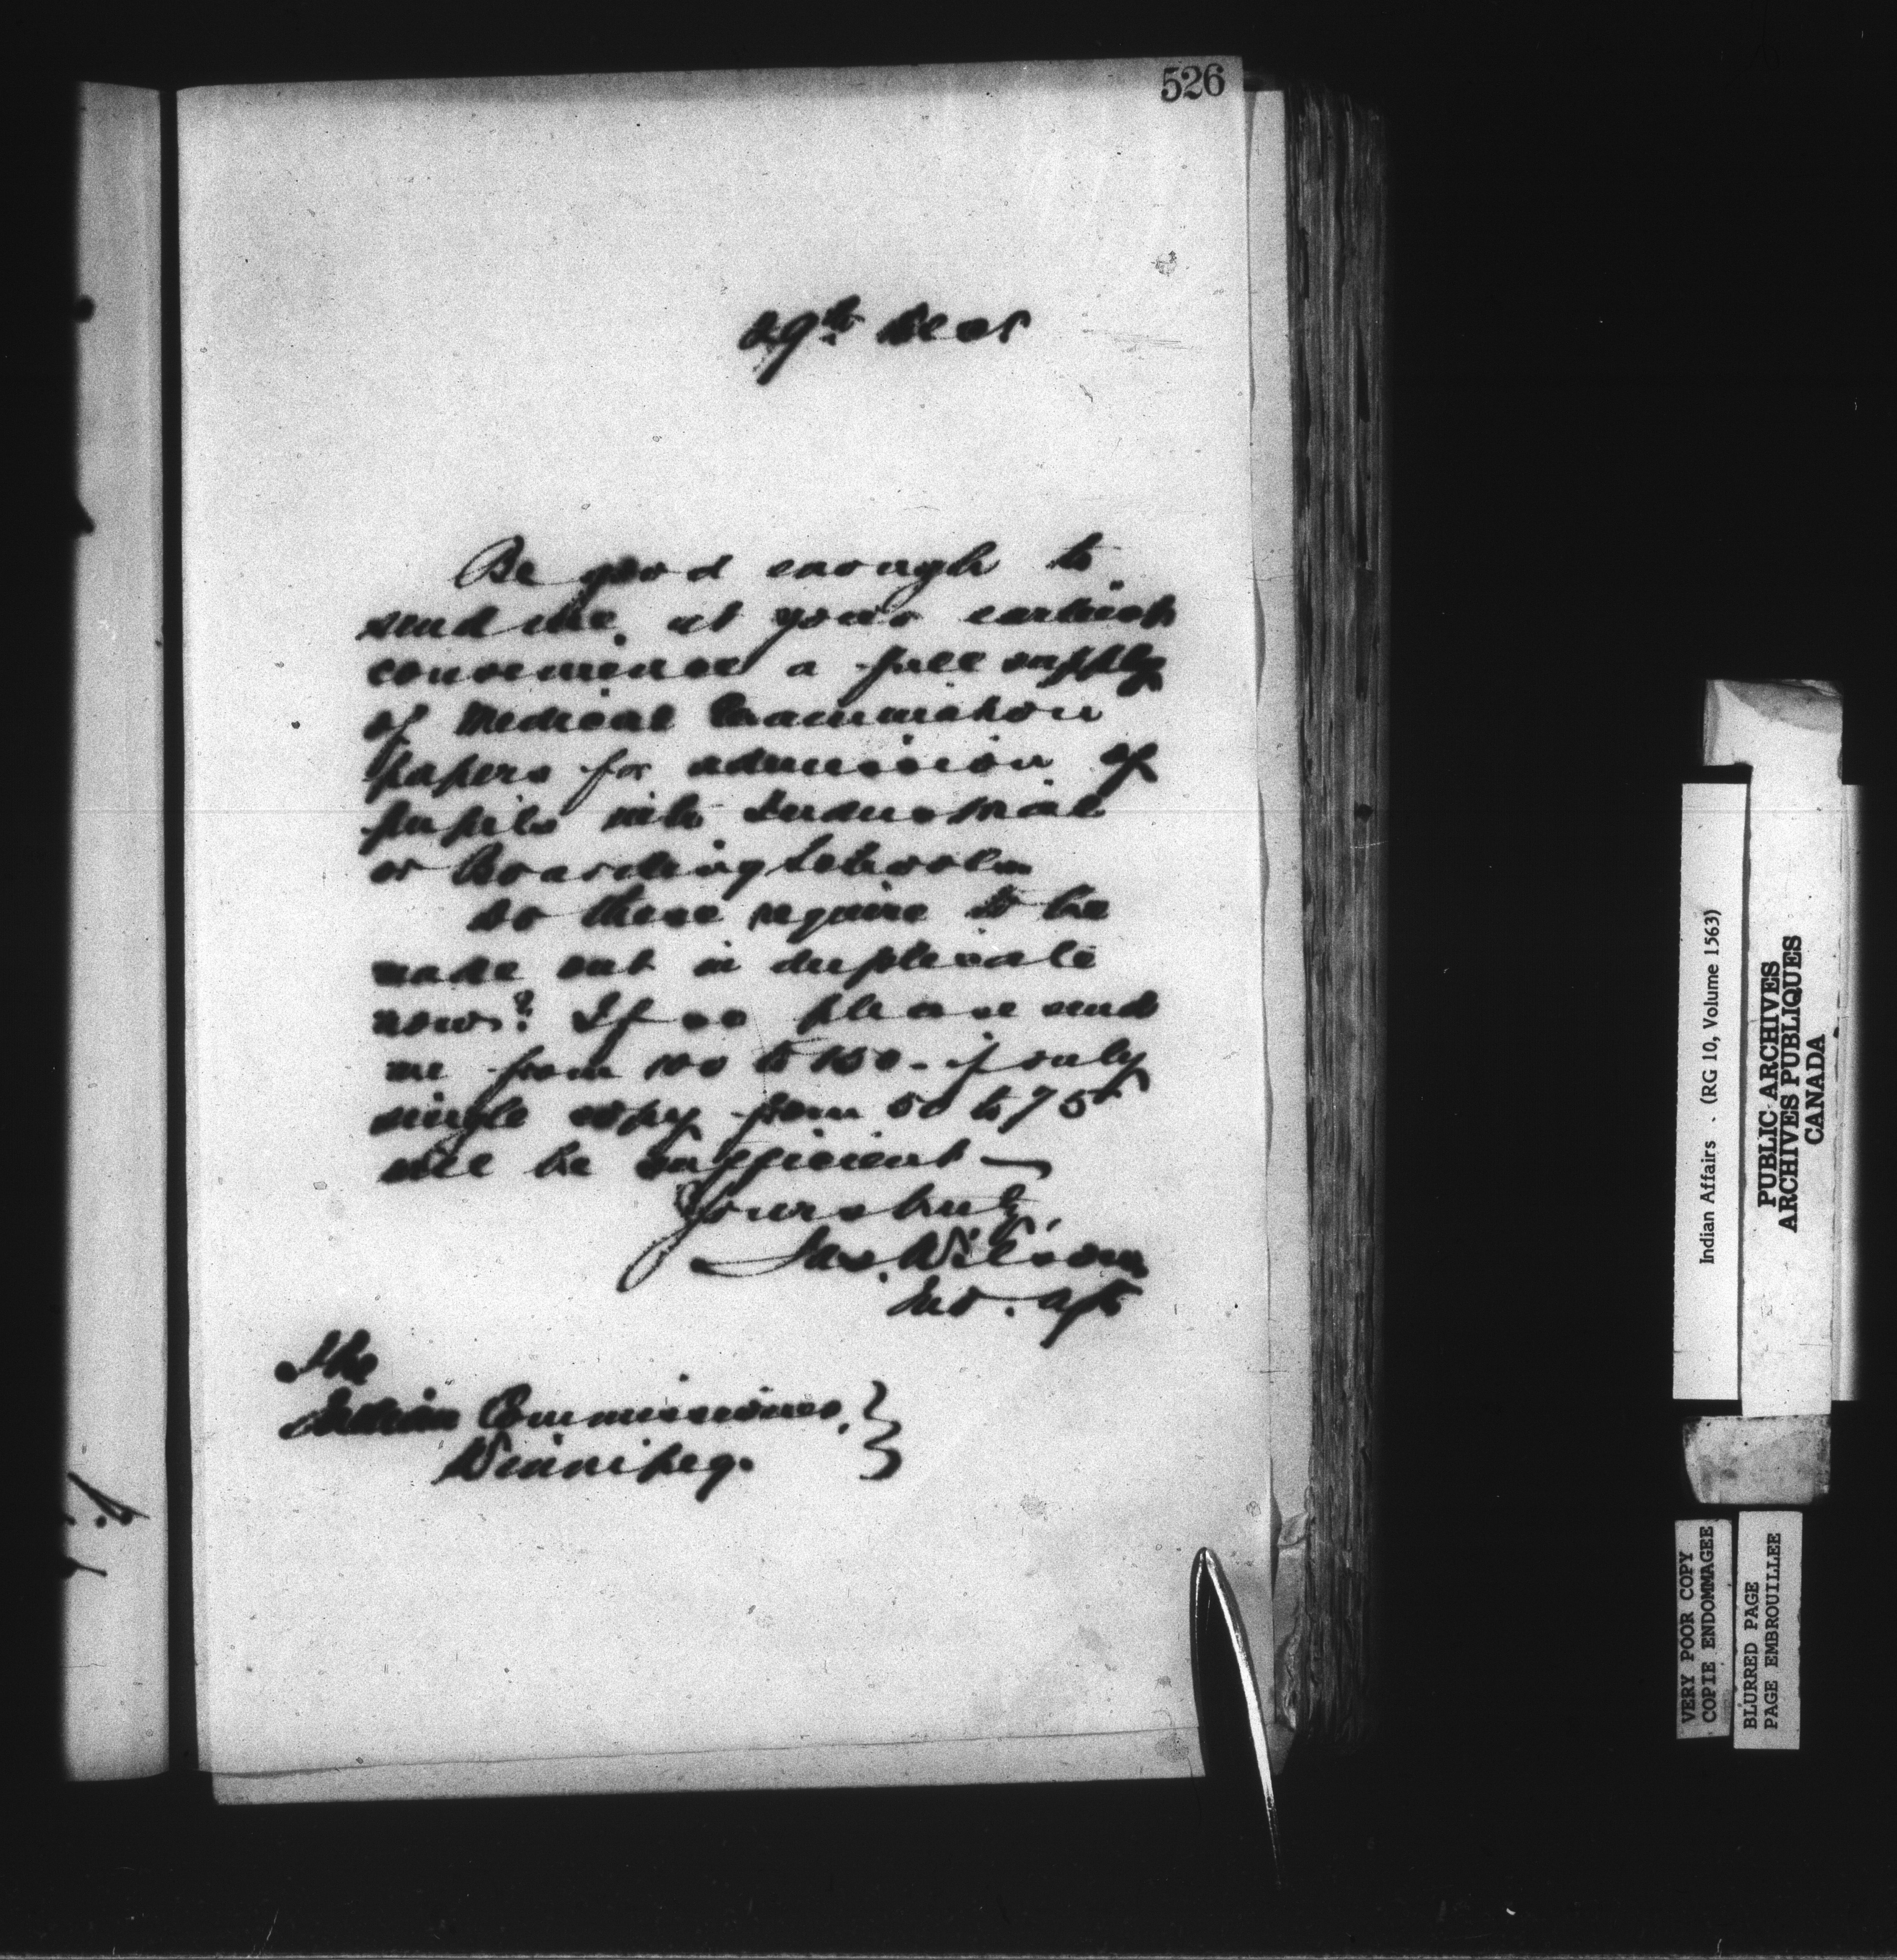 526
29th Dec
Be good enough to
send me at your earliest
convenience a full supply
of Medical Examination
papers for admission of
pupils into Industrial
or Boarding Schools
do these require to be
made out in duplicate
now? If so please send
me from 100 to 150 - if only
single copy from 50 to 75
will be sufficient —
Yours truly,
Jas. Wilson
Ind. Agt
The
Indian Commissioner,
Winnipeg.
Indian Affairs . (RG 10, Volume 1563)
PUBLIC ARCHIVES
ARCHIVES PUBLIQUES
CANADA
VERY POOR COPY
COPIE ENDOMMAGEE
BLURRED PAGE
PAGE EMBROUILLEE